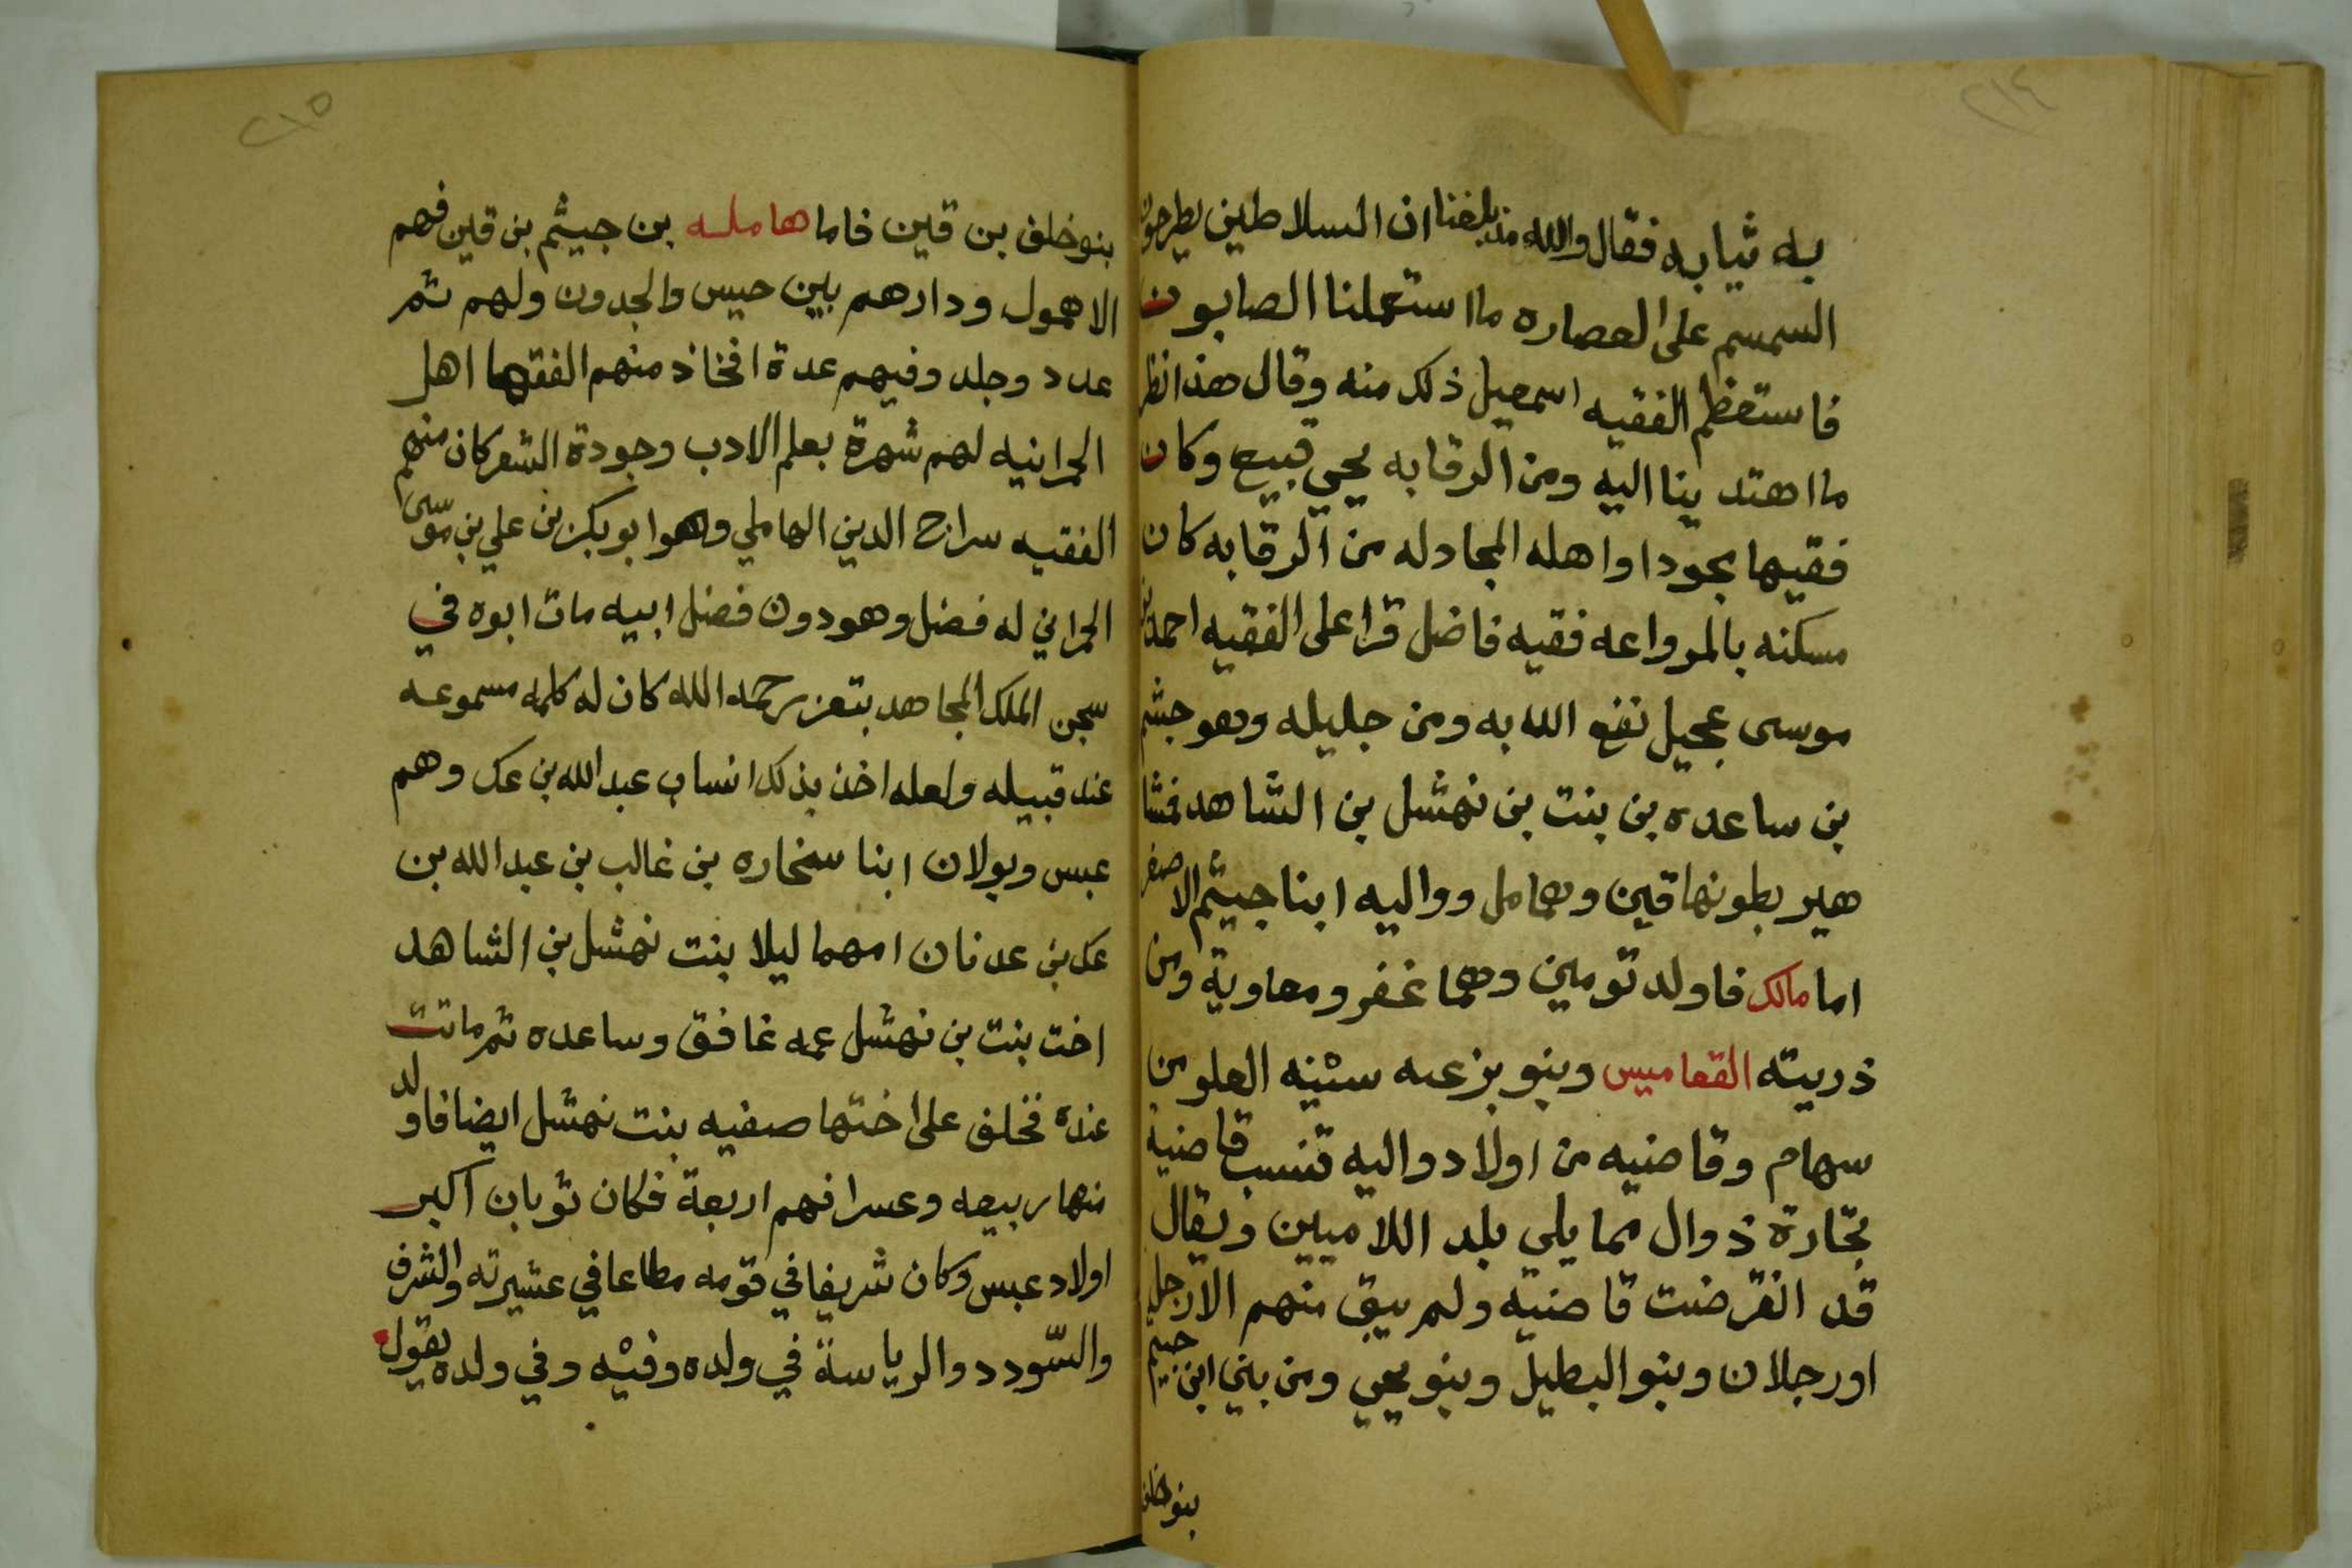 ٢١٤
به ثيابه فقال والله منذ بلغنا ان السلاطين يطرحون
السمسم على العصاره ما استعملنا الصابون
فاستعظم الفقيه اسمعيل ذلك منه وقال هذا نظر
ما اهتدينا اليه ومن الرقابه يحيي قبيع وكان
فقيها مجودا واهله المجادله من الرقابه كان
مسكنه بالمرواعه فقيه فاضل قرا على الفقيه احمد بن
موسى عجيل نفع الله به ومن جليله وهو جشم
بن ساعده بن بنت بن نهشل بن الشاهد فمشا
هير بطونها قين وهامل وواليه ابنا جيثم الاصغر
اما مالك فاولد تومين وهما غفر ومعاوية ومن
ذريته القعاميس وبنو بزعه سئنه العلو من
سهام وقاصيه من اولاد واليه تنسب قاصية
بحارة ذوال مما يلي بلد اللاميين ويقال
قد انقرضت قاصيه ولم يبق منهم الا رجل
او رجلان وبنو البطيل وبنو يحيي ومن بني ابن جيثم
بنو خلف
٢١٥
بنو خلف بن قين فاما هامله بن جيثم بن قين فهم
الاهمول ودارهم بين حيس والجدون ولهم ثم
عدد وجلد وفيهم عدة افخاذ منهم الفقها اهل
الحرانيه لهم شهرة بعلم الادب وجودة الشعر كان منهم
الفقيه سراج الدين الهاملي وهو ابو بكر بن علي بن موسى
الحراني له فضل وهو دون فضل ابيه مات ابوه في
سجن الملك المجاهد بتعز رحمه الله كان له كلمه مسموعه
عند قبيله ولعله اخذ بذلك انساب عبد الله بن عك وهم
عبس وبولان ابنا سخاره بن غالب بن عبد الله بن
عك بن عدنان امهما ليلا بنت نهشل بن الشاهد
اخت بنت بن نهشل عمه غافق وساعده ثم ماتت
عنده فخلف على اختها صفيه بنت نهشل ايضا فاولد
منها ربيعه وعسرا فهم اربعة فكان ثوبان اكبر
اولاد عبس وكان شريفا في قومه مطاعا في عشيرته والشرف
والسّودد والرياسة في ولده وفيه وفي ولده يقول